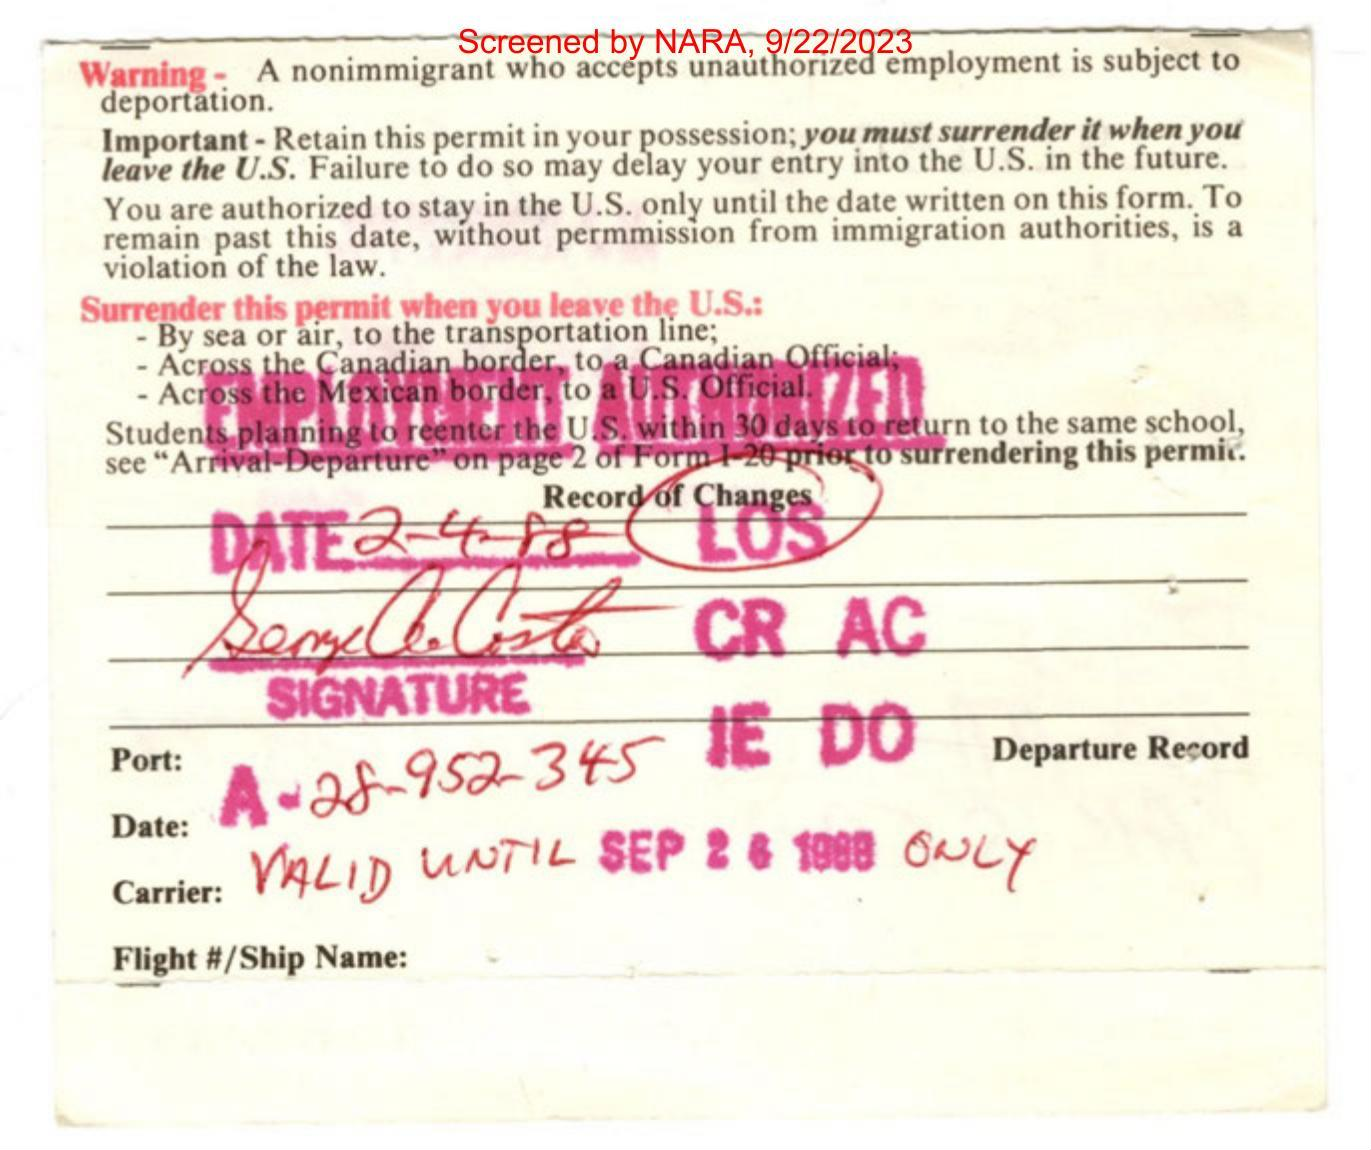 Screened by NARA, 9/22/2023
Warning - A nonimmigrant who accepts unauthorized employment is subject to
deportation.
Important - Retain this permit in your possession; you must surrender it when you
leave the U.S. Failure to do so may delay your entry into the U.S. in the future.
You are authorized to stay in the U.S. only until the date written on this form. To
remain past this date, without permmission from immigration authorities, is a
violation of the law.
Surrender this permit when you leave the U.S.:
- By sea or air, to the transportation line;
- Across the Canadian border, to a Canadian Official;
- Across the Mexican border, to a U.S. Official.
EMPLOYMENT AUTHORIZED
Students planning to reenter the U.S. within 30 days to return to the same school,
see “Arrival-Departure” on page 2 of Form I-20 prior to surrendering this permit.
Record of Changes
DATE 2-4-88 LOS
George A. Costa
CR AC
SIGNATURE
IE DO
Port: Departure Record
A-28-952-345
Date:
VALID UNTIL SEP 26 1988 ONLY
Carrier:
Flight #/Ship Name: